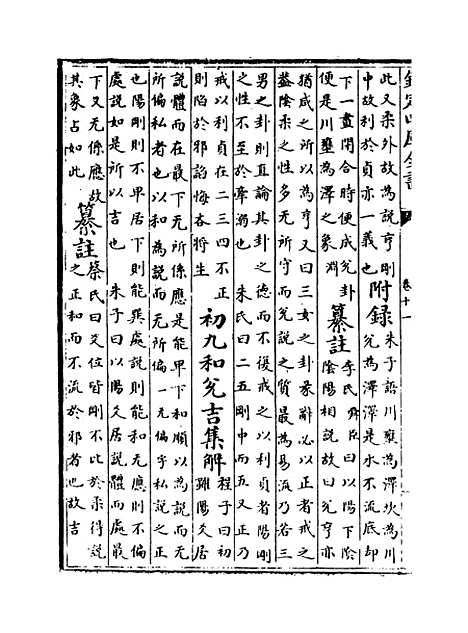 欽定四庫全書
卷十一
此又柔外故為說亨剛
中故利於貞亦一義也
附録
朱子語川壅為澤坎為川
兌為澤澤是水不流底却
下一畫閉合時便成兌卦
便是川壅為澤之象淵
纂註
李氏舜臣曰以陽下陰
陰陽相說故曰兌亨亦
猶咸之所以為亨又曰三女之卦彖辭必以正者戒之
葢陰柔之性多无所守而兌說之質最為易流乃若三
男之卦則直論其卦之德而不復戒之以利貞者陽剛
之性不至於牽溺也 朱氏曰二五剛中而五又正乃
戒以利貞在二三四不正
則陷於邪諂悔吝将生
初九和兌吉集解
程子曰初
雖陽爻居
說體而在最下无所係應是能卑下和順以為說而无
所偏私者也以和為說而无所偏一无偏字私說之正
也陽剛則不卑居下則能巽處說則能和无應則不偏
處說如是所以吉也 朱子曰以陽爻居說體而處最
下又无係應故
其象占如此
纂註
蔡氏曰爻位皆剛不比於柔得說
之正和而不流於邪者也故吉